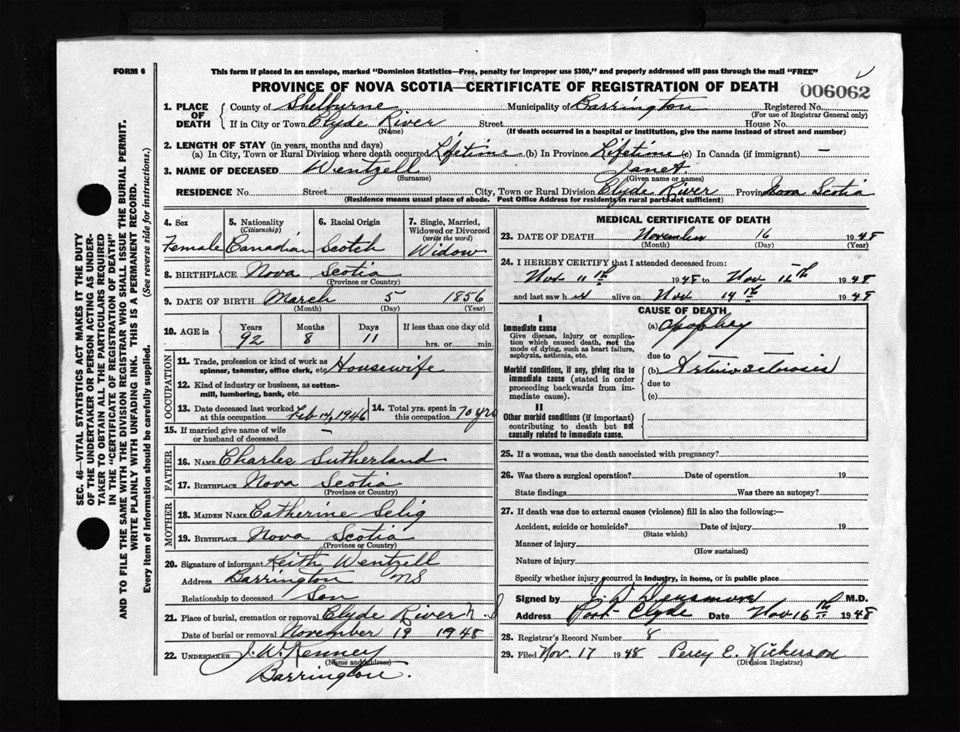 FORM 6
This form if placed in an envelope, marked "Dominion Statistics—Free, penalty for improper use $300," and properly addressed will pass through the mail "FREE"
PROVINCE OF NOVA SCOTIA—CERTIFICATE OF REGISTRATION OF DEATH
006062
1. PLACE OF DEATH
County of Shelburne Municipality of Barrington Registered No.
(For use of Registrar General only)
If in City or Town Clyde River Street House No.
(Name) (If death occurred in a hospital or institution, give the name instead of street and number)
2. LENGTH OF STAY (in years, months and days)
(a) In City, Town or Rural Division where death occurred Lifetime (b) In Province Lifetime (c) In Canada (if immigrant) —
3. NAME OF DECEASED Wentzell Janet
(Surname) (Given name or names)
RESIDENCE No. Street City, Town or Rural Division Clyde River Province Nova Scotia
(Residence means usual place of abode. Post Office Address for residents in rural parts not sufficient)
4. Sex
Female
5. Nationality
(Citizenship)
Canadian
6. Racial Origin
Scotch
7. Single, Married, Widowed or Divorced
(write the word)
Widow
8. BIRTHPLACE Nova Scotia
(Province or Country)
9. DATE OF BIRTH March 5 1856
(Month) (Day) (Year)
10. AGE in Years Months Days If less than one day old
92 8 11 hrs. or min.
OCCUPATION
11. Trade, profession or kind of work as spinner, teamster, office clerk, etc. Housewife
12. Kind of industry or business, as cotton-mill, lumbering, bank, etc.
13. Date deceased last worked at this occupation Feb 14, 1946
14. Total yrs. spent in this occupation 70 yrs
15. If married give name of wife or husband of deceased —
FATHER
16. NAME Charles Sutherland
17. BIRTHPLACE Nova Scotia
(Province or Country)
MOTHER
18. MAIDEN NAME Catherine Selig
19. BIRTHPLACE Nova Scotia
(Province or Country)
20. Signature of informant Keith Wentzell
Address Barrington NS
Relationship to deceased Son
21. Place of burial, cremation or removal Clyde River N.S
Date of burial or removal November 19 1948
22. UNDERTAKER J. W. Kenney
(Name and address)
Barrington.
MEDICAL CERTIFICATE OF DEATH
23. DATE OF DEATH November 16 1948
(Month) (Day) (Year)
24. I HEREBY CERTIFY that I attended deceased from:
Nov 11th 1948 to Nov 1948
and last saw h er alive on Nov 14th 1948
CAUSE OF DEATH
I
Immediate cause
Give disease, injury or complication which caused death, not the mode of dying, such as heart failure, asphyxia, asthenia, etc.
(a)
due to
Morbid conditions, if any, giving rise to immediate cause (stated in order proceeding backwards from immediate cause).
(b)
due to
(c)
II
Other morbid conditions (if important) contributing to death but not causally related to immediate cause.
25. If a woman, was the death associated with pregnancy?
26. Was there a surgical operation? Date of operation 19
State findings Was there an autopsy?
27. If death was due to external causes (violence) fill in also the following:—
Accident, suicide or homicide? Date of injury 19
(State which)
Manner of injury
(How sustained)
Nature of injury
Specify whether injury occurred in industry, in home, or in public place
Signed by M.D.
Address Port Clyde Date Nov 16th 1948
28. Registrar's Record Number 8
29. Filed Nov. 17 1948 Percy E. Nickerson
(Division Registrar)
SEC. 46—VITAL STATISTICS ACT MAKES IT THE DUTY
OF THE UNDERTAKER OR PERSON ACTING AS UNDER-
TAKER TO OBTAIN ALL THE PARTICULARS REQUIRED
IN THE "CERTIFICATE OF REGISTRATION OF DEATH"
AND TO FILE THE SAME WITH THE DIVISION REGISTRAR WHO SHALL ISSUE THE BURIAL PERMIT.
WRITE PLAINLY WITH UNFADING INK. THIS IS A PERMANENT RECORD.
Every item of information should be carefully supplied. (See reverse side for instructions.)